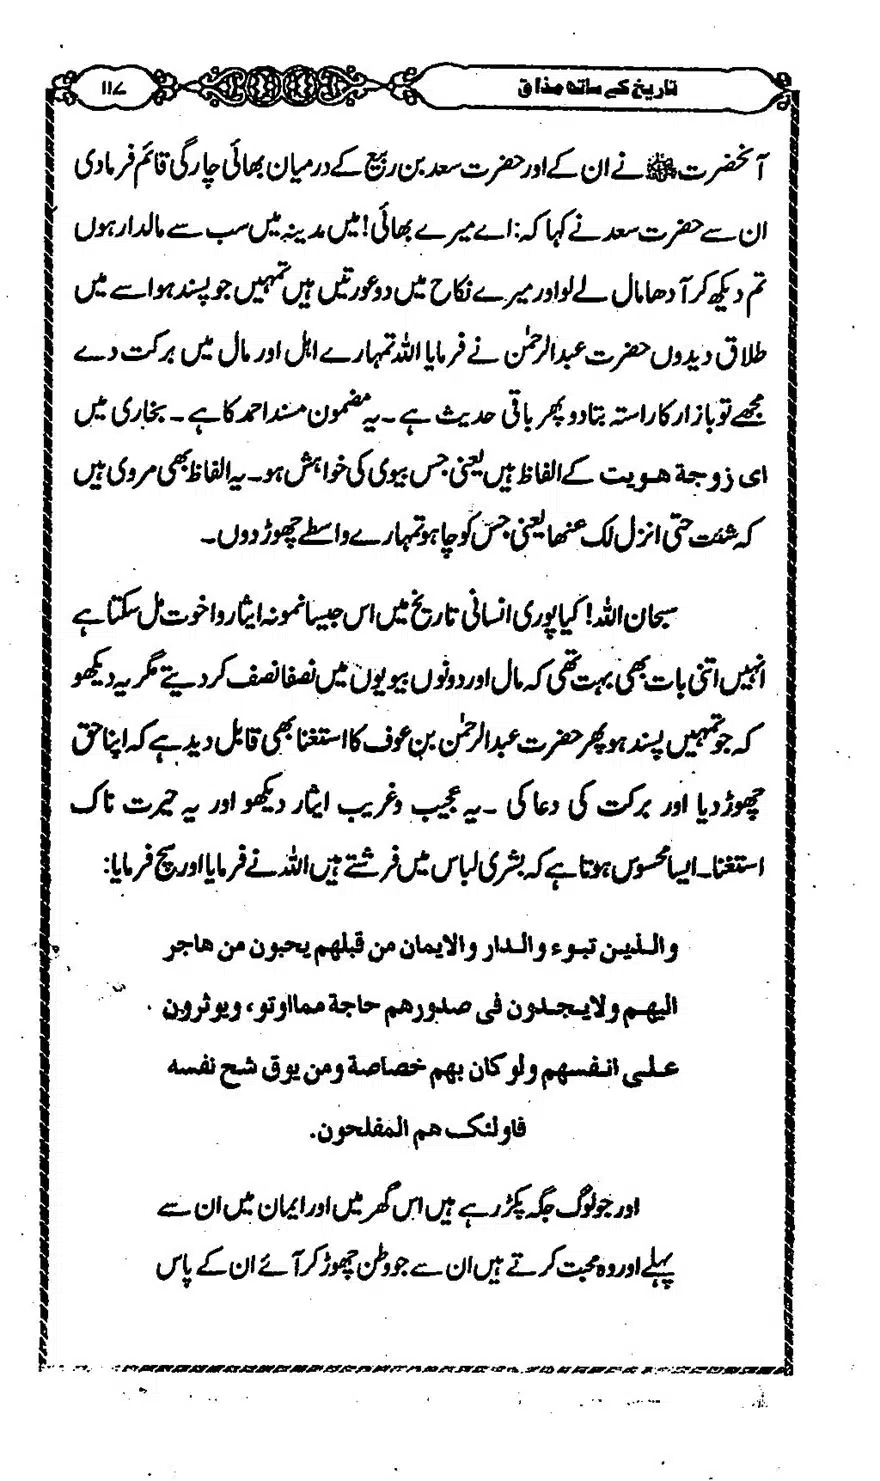 تاریخ کے ساتھ مذاق
۱۱۷
آنحضرت ﷺ نے ان کے اور حضرت سعد بن ربیع کے درمیان بھائی چارگی قائم فرمادی
ان سے حضرت سعد نے کہا کہ: اے میرے بھائی! میں مدینہ میں سب سے مالدار ہوں
تم دیکھ کر آدھا مال لے لو اور میرے نکاح میں دو عورتیں ہیں تمہیں جو پسند ہو اسے میں
طلاق دیدوں حضرت عبدالرحمٰن نے فرمایا اللہ تمہارے اہل اور مال میں برکت دے
مجھے تو بازار کا راستہ بتادو پھر باقی حدیث ہے۔ یہ مضمون مسند احمد کا ہے۔ بخاری میں
ای زوجة هويت کے الفاظ ہیں یعنی جس بیوی کی خواہش ہو۔ یہ الفاظ بھی مروی ہیں
کہ شئت حتی انزل لک عنھا یعنی جس کو چاہو تمہارے واسطے چھوڑ دوں۔
سبحان اللہ! کیا پوری انسانی تاریخ میں اس جیسا نمونہ ایثار و اخوت مل سکتا ہے
انہیں اتنی بات بھی بہت تھی کہ مال اور دونوں بیویوں میں نصفا نصف کر دیتے مگر یہ دیکھو
کہ جو تمہیں پسند ہو پھر حضرت عبدالرحمٰن بن عوف کا استغنا بھی قابل دید ہے کہ اپنا حق
چھوڑ دیا اور برکت کی دعا کی ۔ یہ عجیب وغریب ایثار دیکھو اور یہ حیرت ناک
استغنا۔ ایسا محسوس ہوتا ہے کہ بشری لباس میں فرشتے ہیں اللہ نے فرمایا اور سچ فرمایا:
والذين تبوء والدار والايمان من قبلهم يحبون من هاجر
اليهم ولايجدون فى صدورهم حاجة مما اوتو، ويوثرون
على انفسهم ولو كان بهم خصاصة ومن يوق شح نفسه
فاولئک هم المفلحون.
اور جو لوگ جگہ پکڑ رہے ہیں اس گھر میں اور ایمان میں ان سے
پہلے اور وہ محبت کرتے ہیں ان سے جو وطن چھوڑ کر آئے ان کے پاس